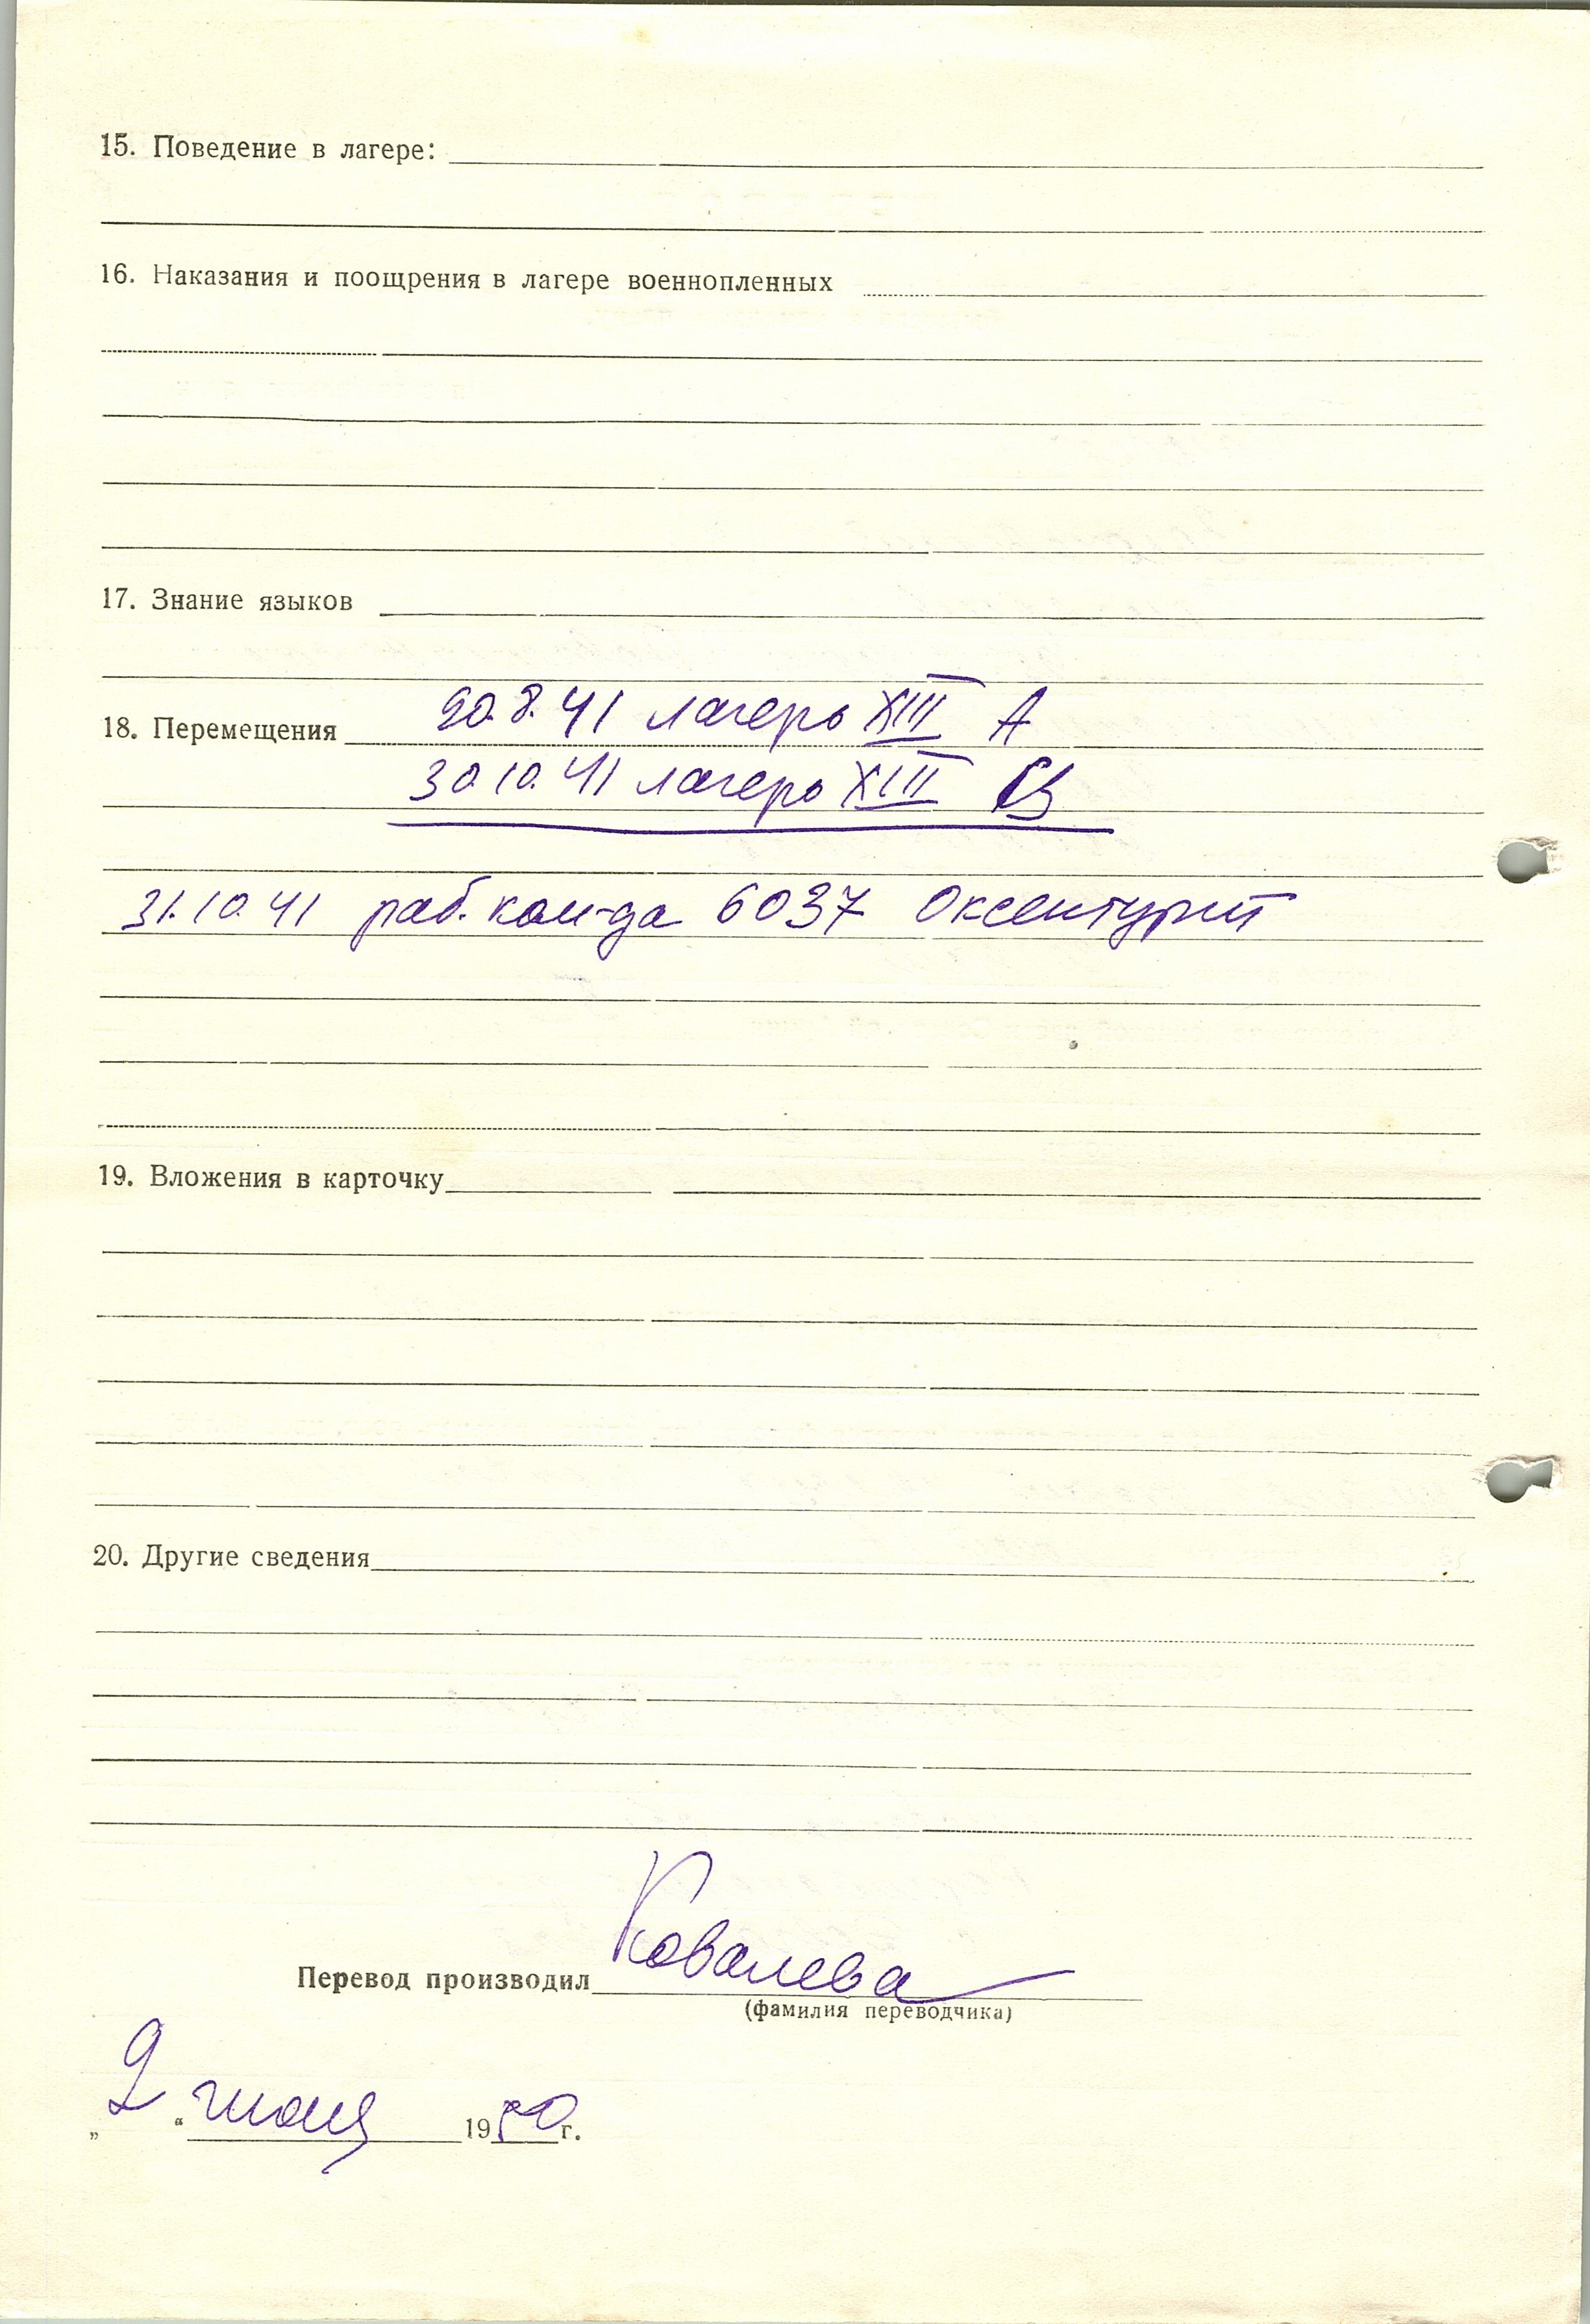 15. Поведение в лагере:
16. Наказания и поощрения в лагере военнопленных
17. Знание языков
18. Перемещения 20.8.41 лагерь XIII А
30.10.41 лагерь XIII В
31.10.41 раб. ком-да 6037
19. Вложения в карточку
20. Другие сведения
Перевод производил Ковалева
(фамилия переводчика)
„2“ июня 1950 г.